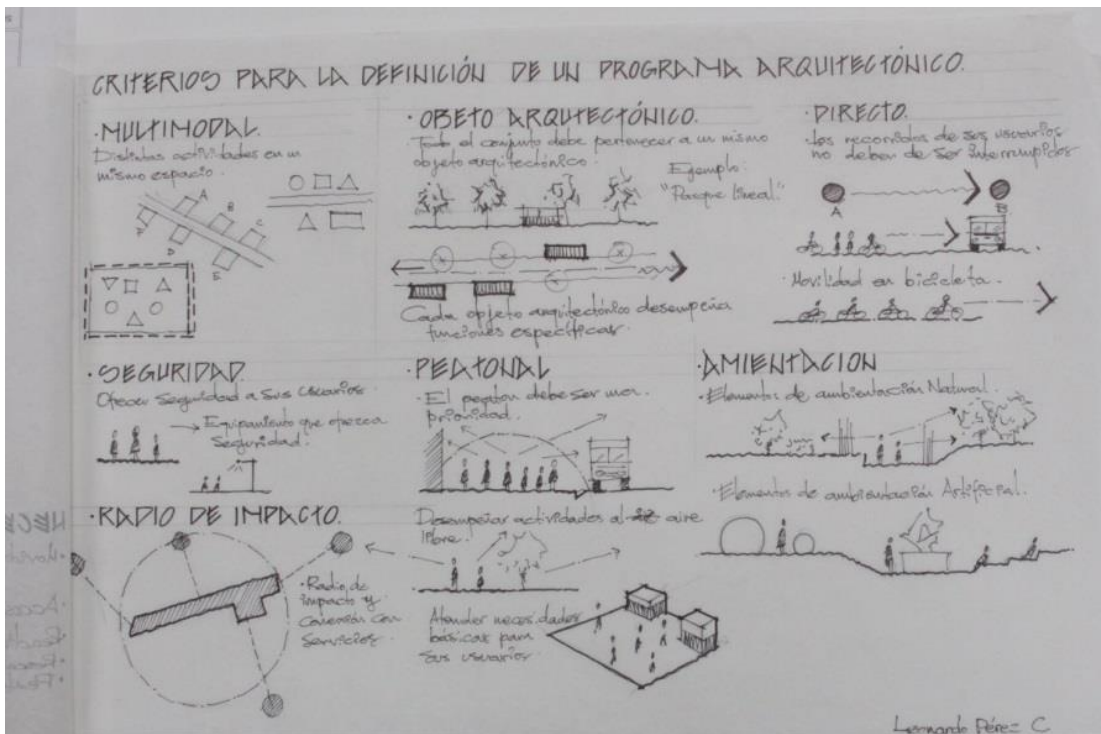 CRITERIOS PARA LA DEFINICIÓN DE UN PROGRAMA ARQUITECTÓNICO.
·MULTIMODAL.
Distintas actividades en un
mismo espacio.
A
B
C
D
E
·OBJETO ARQUITECTÓNICO.
Todo el conjunto debe pertenecer a un mismo
objeto arquitectónico.
Ejemplo:
"Parque lineal."
Cada objeto arquitectónico desempeña
funciones específicas.
·DIRECTO.
·Los recorridos de sus usuarios
no deben de ser interrumpidos
A
B
·Movilidad en bicicleta.
·SEGURIDAD.
Ofrecer Seguridad a sus Usuarios.
Equipamiento que ofrezca
Seguridad.
·PEATONAL
·El peaton debe ser una
prioridad.
Desempeñar actividades al aire
libre.
Atender necesidades
básicas para
sus usuarios.
·AMIENTACION
·Elementos de ambientación Natural.
·Elementos de ambientación Artificial.
·RADIO DE IMPACTO.
·Radio de
impacto y
conexión con
Servicios.
Leonardo Pérez C